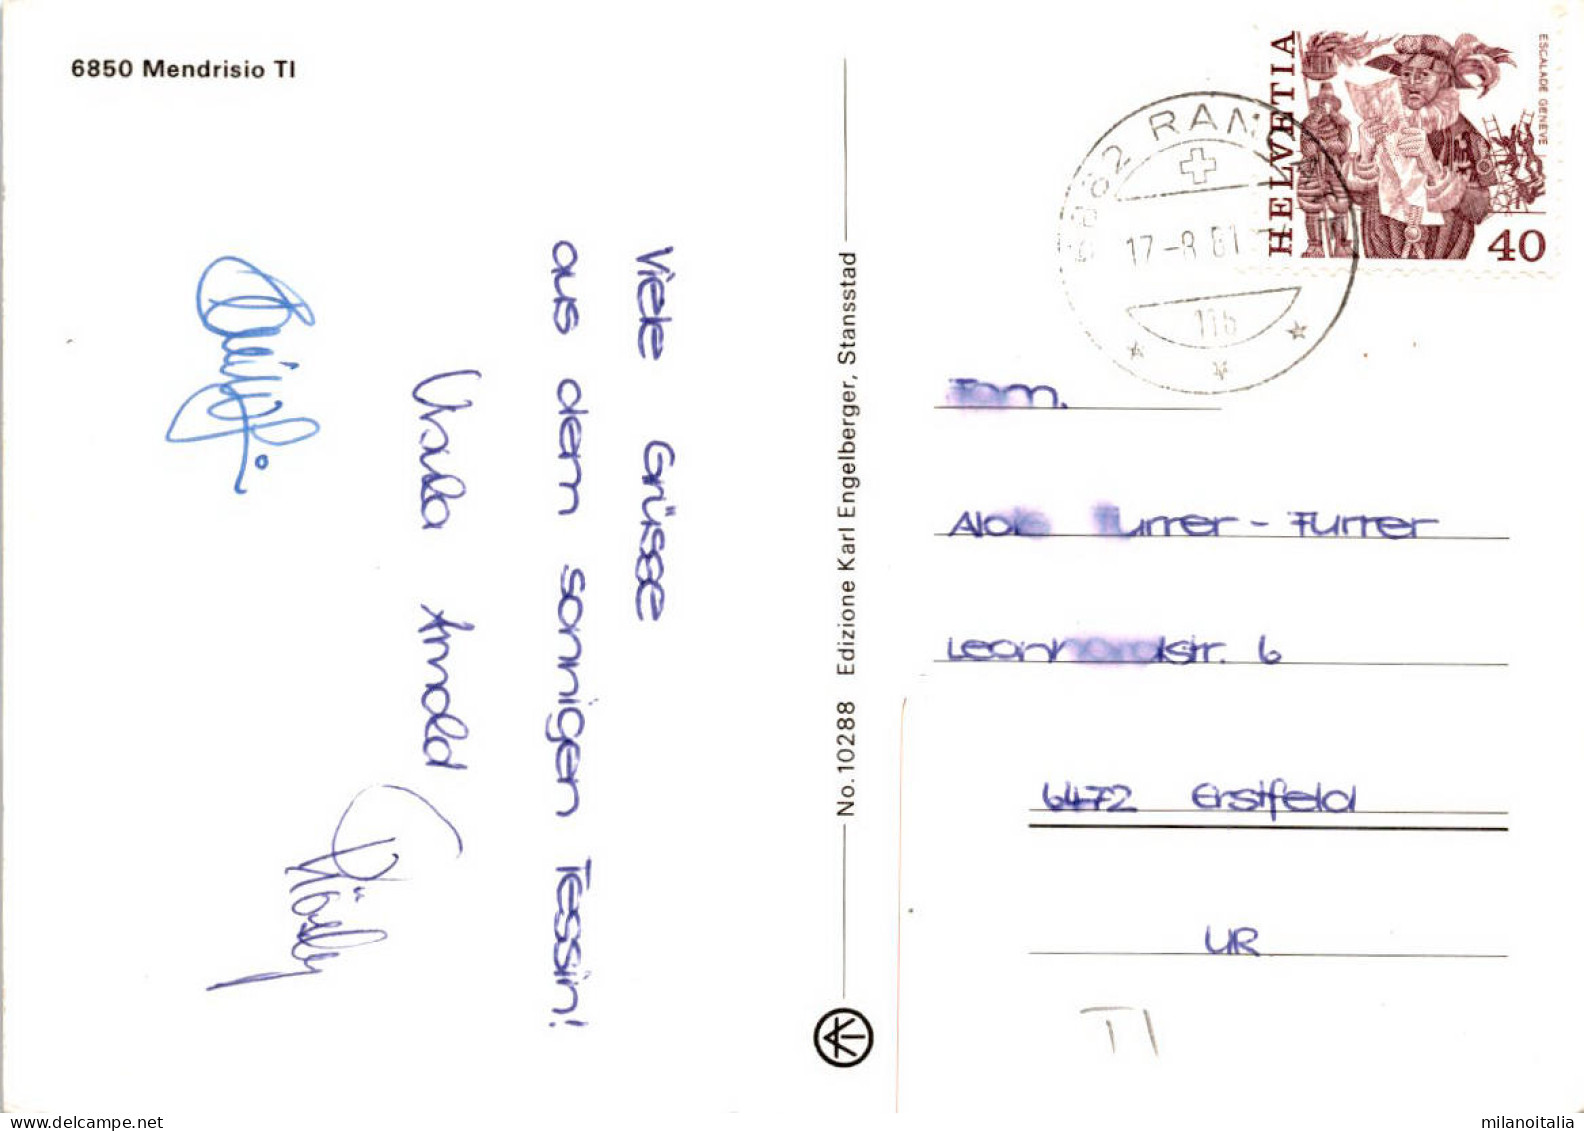 6850 Mendrisio TI
Viele Grüsse
aus dem sonnigen Tessin!
Ursula Arnold
No. 10288 Edizione Karl Engelberger, Stansstad
HELVETIA
ESCALADE GENÈVE
40
17-8 81
Fam.
Furrer - Furrer
Leonhardstr. 6
6472 Erstfeld
UR
TI
milanoitalia